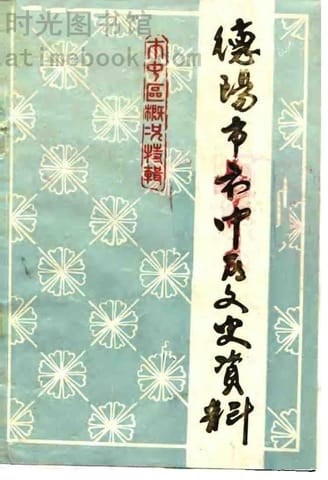 时光图书馆
atimebook.com
德陽市市中区文史資料
市中區概况特輯